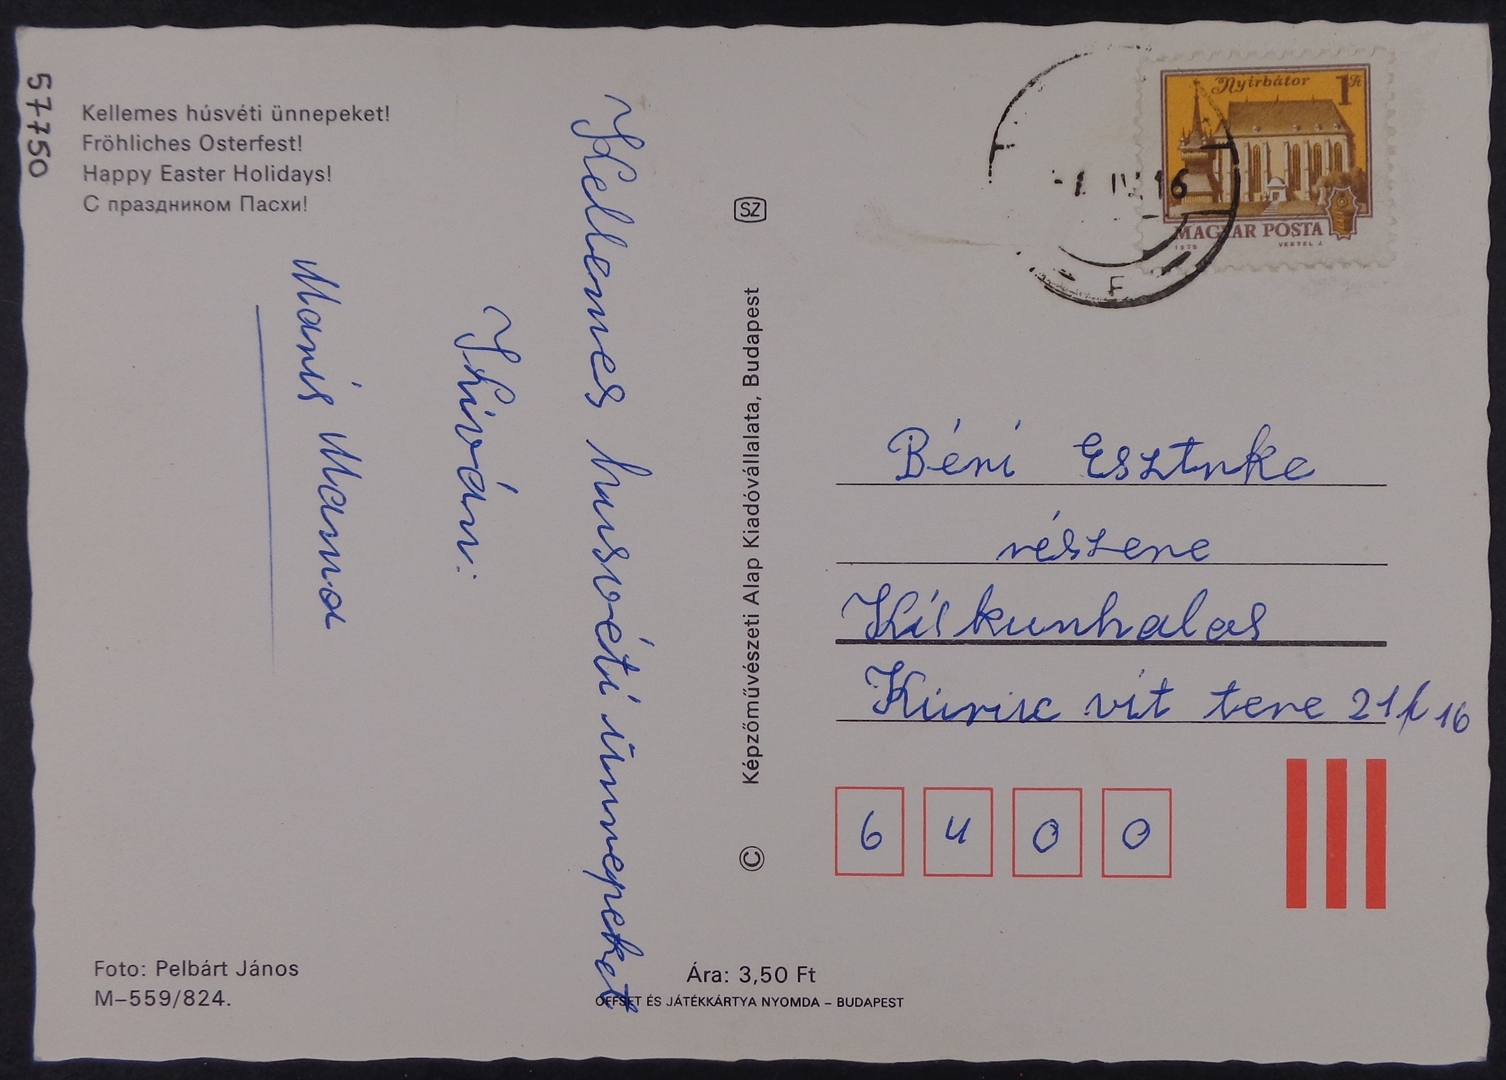 57750
Kellemes húsvéti ünnepeket!
Fröhliches Osterfest!
Happy Easter Holidays!
С праздником Пасхи!
Kellemes husvéti ünnepeket
Kíván:
Mama
Foto: Pelbárt János
M–559/824.
SZ
Képzőművészeti Alap Kiadóvállalata, Budapest
©
Ára: 3,50 Ft
OFFSET ÉS JÁTÉKKÁRTYA NYOMDA – BUDAPEST
Nyírbátor 1 Ft
MAGYAR POSTA
VERTEL J.
-1. IV. 16
F
Béni Esztrke
részere
Kiskunhalas
vit tere 21 16
6 4 0 0